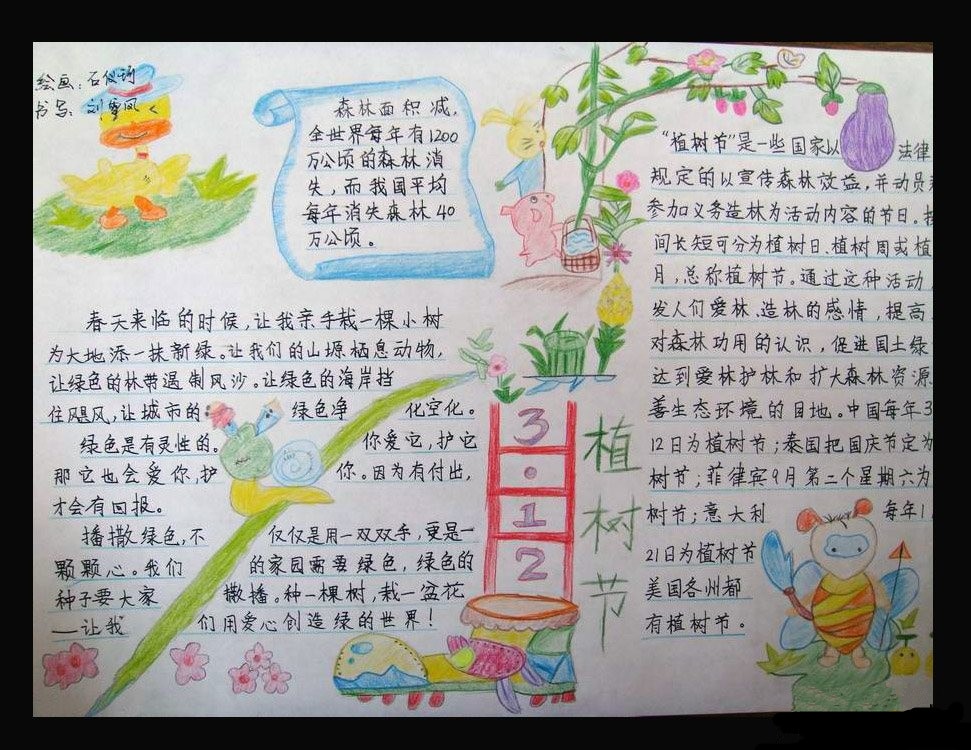 绘画：石仪
书写：刘
森林面积减，
全世界每年有1200
万公顷的森林消
失，而我国平均
每年消失森林40
万公顷。
春天来临的时候，让我亲手栽一棵小树
为大地添一抹新绿。让我们的山塬栖息动物，
让绿色的林带遏制风沙。让绿色的海岸挡
住飓风，让城市的绿色净化空化。
绿色是有灵性的。你爱它，护它
那它也会爱你，护你。因为有付出，
才会有回报。
播撒绿色，不仅仅是用一双双手，更是一
颗颗心。我们的家园需要绿色，绿色的
种子要大家撒播。种一棵树，栽一盆花
—让我们用爱心创造绿的世界！
3·12
植树节
“植树节”是一些国家以法律
规定的以宣传森林效益，并动员
参加义务造林为活动内容的节日。按
间长短可分为植树日、植树周或植
月，总称植树节。通过这种活动，
发人们爱林、造林的感情，提高
对森林功用的认识，促进国土绿
达到爱林护林和扩大森林资源、
善生态环境的目地。中国每年3
12日为植树节；泰国把国庆节定为
树节；菲律宾9月第二个星期六为
树节；意大利每年1
21日为植树节
美国各州都
有植树节。